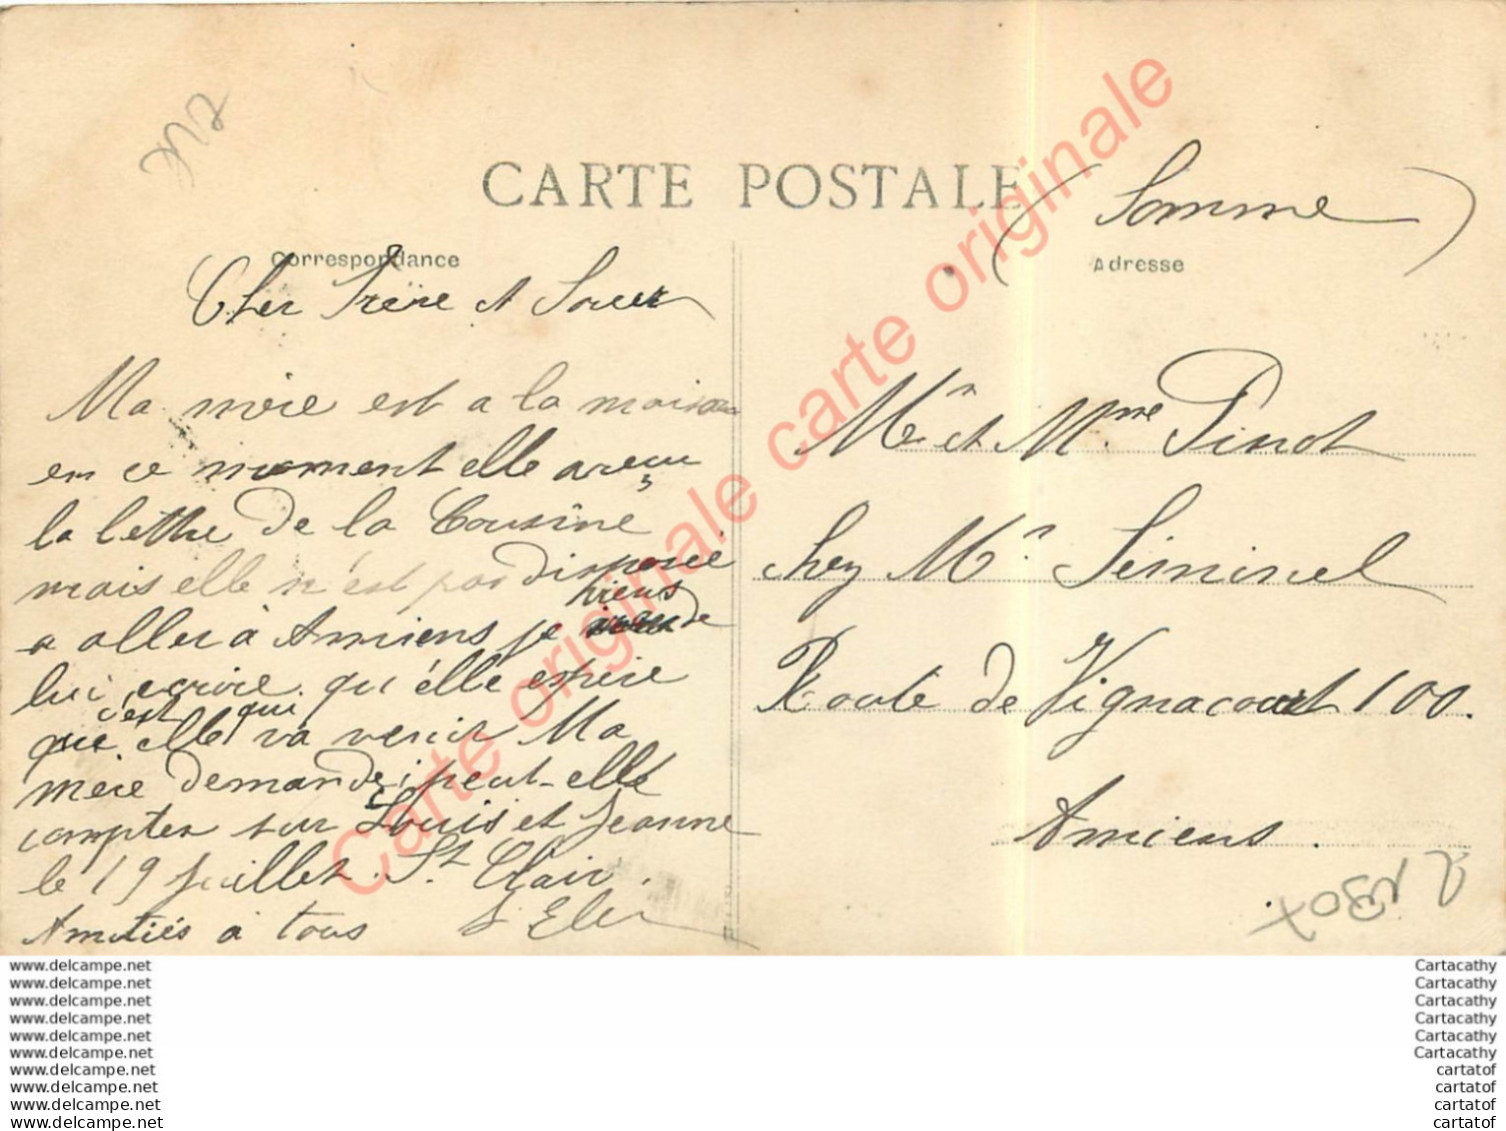 CARTE POSTALE
Correspondance
Cher Frère et Soeur
Ma mère est a la maison
en ce moment elle a reçu
la lettre de la Cousine
mais elle n'est pas disposée
a aller à Amiens je viens de
lui ecrire qu'elle espère
c'est qui
que elle va venir Ma
mère demande peut-elle
compter sur Louis et Jeanne
le 19 Juillet. St Clair.
Amitiés à tous
(Somme)
Adresse
Mr et Mme Pinot
chez Mr Séminel
Route de Vignacourt 100.
Amiens.
Carte originale carte originale carte originale
www.delcampe.net
www.delcampe.net
www.delcampe.net
www.delcampe.net
www.delcampe.net
www.delcampe.net
www.delcampe.net
www.delcampe.net
www.delcampe.net
www.delcampe.net
Cartacathy
Cartacathy
Cartacathy
Cartacathy
Cartacathy
Cartacathy
cartatof
cartatof
cartatof
cartatof